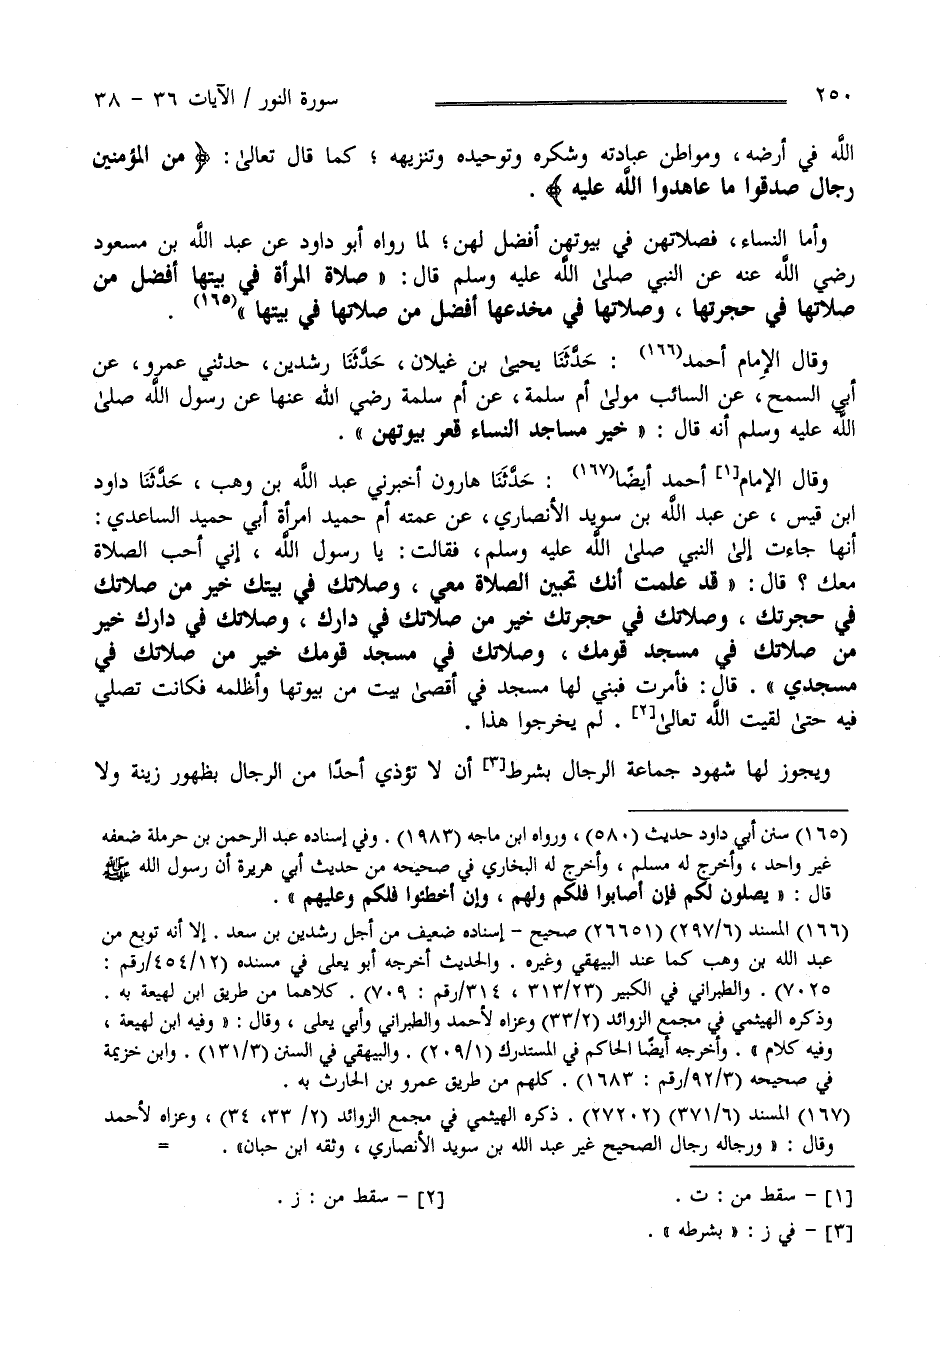 ٢٥٠ سورة النور / الآيات ٣٦ - ٣٨
اللَّه في أرضه، ومواطن عبادته وشكره وتوحيده وتنزيهه ؛ كما قال تعالىٰ : ﴿ من المؤمنين
رجال صدقوا ما عاهدوا اللَّه عليه ﴾ .
وأما النساء، فصلاتهن في بيوتهن أفضل لهن؛ لما رواه أبو داود عن عبد اللَّه بن مسعود
رضي اللَّه عنه عن النبي صلىٰ اللَّه عليه وسلم قال : « صلاة المرأة في بيتها أفضل من
صلاتها في حجرتها ، وصلاتها في مخدعها أفضل من صلاتها في بيتها »(١٦٥) .
وقال الإِمام أحمد(١٦٦) : حَدَّثَنَا يحيىٰ بن غيلان، حَدَّثَنَا رشدين، حدثني عمرو، عن
أبي السمح، عن السائب مولىٰ أم سلمة، عن أم سلمة رضي الله عنها عن رسول اللَّه صلىٰ
اللَّه عليه وسلم أنه قال : « خير مساجد النساء قعر بيوتهن » .
وقال الإِمام[١] أحمد أيضًا(١٦٧) : حَدَّثَنَا هارون أخبرني عبد اللَّه بن وهب ، حَدَّثَنَا داود
ابن قيس ، عن عبد اللَّه بن سويد الأنصاري، عن عمته أم حميد امرأة أبي حميد الساعدي :
أنها جاءت إلىٰ النبي صلىٰ اللَّه عليه وسلم، فقالت: يا رسول اللَّه ، إني أحب الصلاة
معك ؟ قال: « قد علمت أنك تحبين الصلاة معي ، وصلاتك في بيتك خير من صلاتك
في حجرتك ، وصلاتك في حجرتك خير من صلاتك في دارك ، وصلاتك في دارك خير
من صلاتك في مسجد قومك ، وصلاتك في مسجد قومك خير من صلاتك في
مسجدي » . قال: فأمرت فبني لها مسجد في أقصىٰ بيت من بيوتها وأظلمه فكانت تصلي
فيه حتىٰ لقيت اللَّه تعالىٰ[٢] . لم يخرجوا هذا .
ويجوز لها شهود جماعة الرجال بشرط[٣] أن لا تؤذي أحدًا من الرجال بظهور زينة ولا
(١٦٥) سنن أبي داود حديث (٥٨٠) ، ورواه ابن ماجه (١٩٨٣) . وفي إسناده عبد الرحمن بن حرملة ضعفه
غير واحد ، وأخرج له مسلم ، وأخرج له البخاري في صحيحه من حديث أبي هريرة أن رسول الله ﷺ
قال : « يصلون لكم فإن أصابوا فلكم ولهم ، وإن أخطئوا فلكم وعليهم » .
(١٦٦) المسند (٢٩٧/٦) (٢٦٦٥١) صحيح - إسناده ضعيف من أجل رشدين بن سعد . إلا أنه توبع من
عبد الله بن وهب كما عند البيهقي وغيره . والحديث أخرجه أبو يعلى في مسنده (٤٥٤/١٢/رقم :
٧٠٢٥) . والطبراني في الكبير (٣١٣/٢٣ ، ٣١٤/رقم : ٧٠٩) . كلاهما من طريق ابن لهيعة به .
وذكره الهيثمي في مجمع الزوائد (٣٣/٢) وعزاه لأحمد والطبراني وأبي يعلى ، وقال : « وفيه ابن لهيعة ،
وفيه كلام » . وأخرجه أيضًا الحاكم في المستدرك (٢٠٩/١) . والبيهقي في السنن (١٣١/٣) . وابن خزيمة
في صحيحه (٩٢/٣/رقم : ١٦٨٣) . كلهم من طريق عمرو بن الحارث به .
(١٦٧) المسند (٣٧١/٦) (٢٧٢٠٢) . ذكره الهيثمي في مجمع الزوائد (٢/ ٣٣، ٣٤) ، وعزاه لأحمد
وقال : « ورجاله رجال الصحيح غير عبد الله بن سويد الأنصاري ، وثقه ابن حبان» . =
[١] - سقط من : ت . [٢] - سقط من : ز .
[٣] - في ز : « بشرطه » .